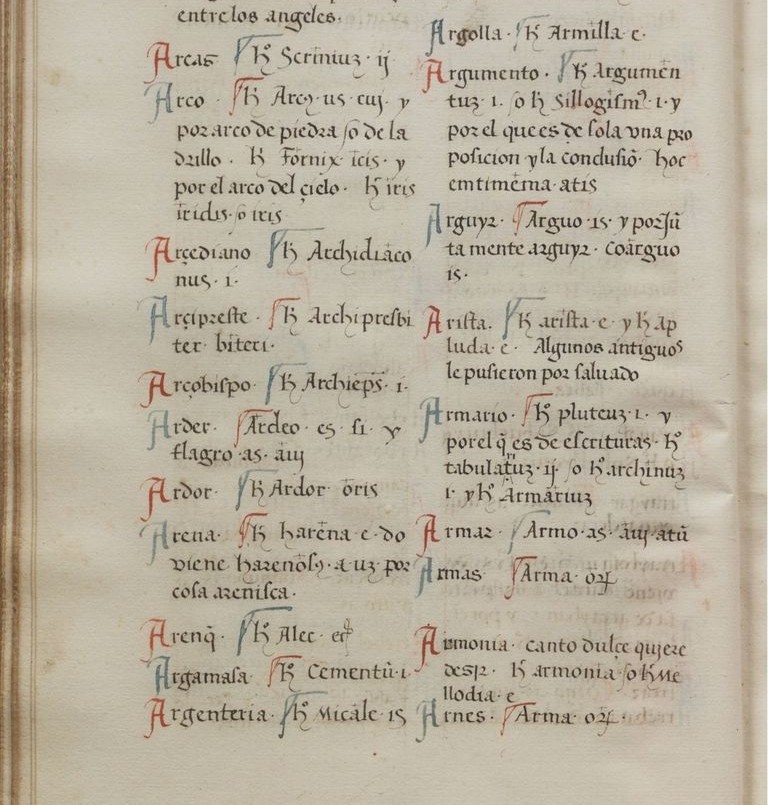 entre los angeles.
Arcas ħ Scriniuz · ij
Arco · ħ Arcꝰ · us · cuj · y
por arco de piedra so de la
drillo · ħ Fornix · icis · y
por el arco del çielo · ħ iris
iridis · so iris
Arçediano ħ Archidiaco
nus · i ·
Arçipreste · ħ Archipresbi
ter · biteri ·
Arçobispo · ħ Archiep̄s · i ·
Arder · Ardeo · es · si · y
flagro · as · aui
Ardor · ħ Ardor · oris
Arena · ħ harena · e · do
viene harenosꝰ · a · uz · por
cosa arenisca ·
Arenq̄ · ħ Alec · ecis
Argamasa · ħ Cementū · i ·
Argenteria · ħ Micale · is
Argolla · ħ Armilla · e ·
Argumento · ħ Argumen
tuz · i · so ħ Sillogismꝰ · i · y
por el que es de sola vna pro
posicion y la conclusiō · hoc
emtimema · atis
Arguyr · Arguo · is · y por Jū
ta mente arguyr · Coarguo
is ·
Arista · ħ arista · e · y ħ Ap
luda · e · Algunos antiguos
le pusieron por saluado
Armario · ħ pluteuz · i · y
por el q̄ es de escrituras · ħ
tabulatuz · ij · so ħ archiuuz
i · y ħ Armariuz
Armar · Armo · as · aui · atū
Armas · Arma · oꝝ
Armonia · canto dulçe quiere
desir · ħ armonia · so ħ Me
llodia · e
Arnes · Arma · oꝝ ·